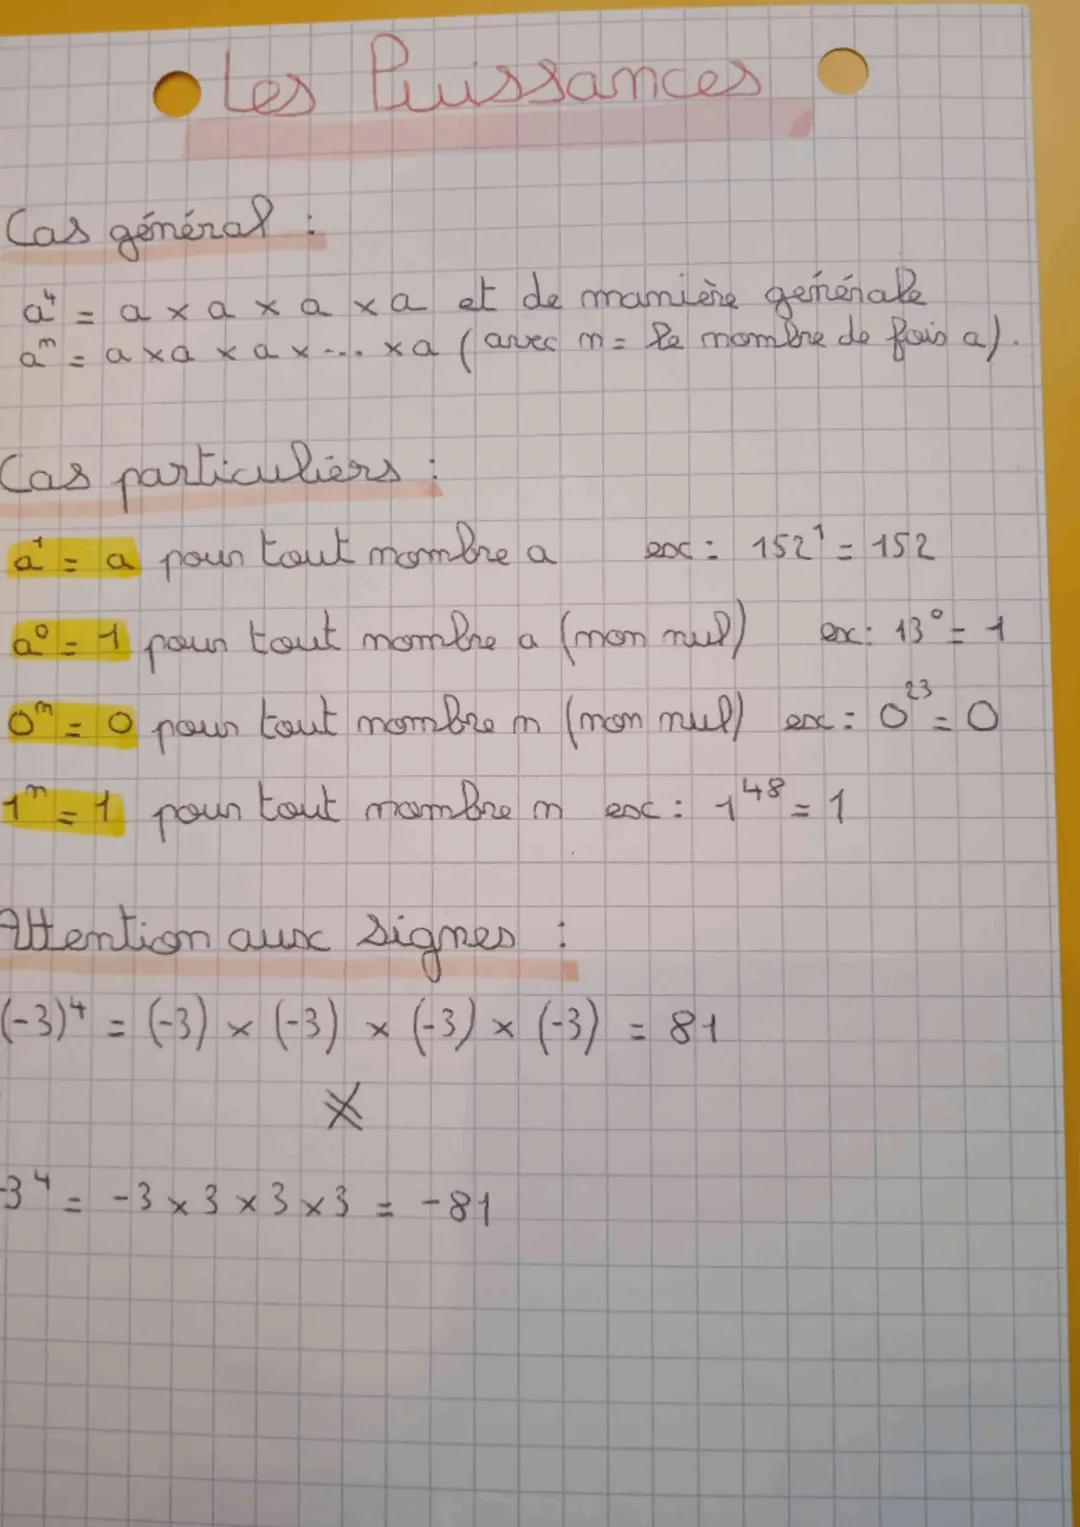 Les Puissances
Cas général :
a⁴ = a × a × a × a et de manière générale
aⁿ = a × a × a × ... × a (avec n = le nombre de fois a).
Cas particuliers :
a¹ = a pour tout nombre a ex : 152¹ = 152
a⁰ = 1 pour tout nombre a (non nul) ex : 13⁰ = 1
0ⁿ = 0 pour tout nombre n (non nul) ex : 0²³ = 0
1ⁿ = 1 pour tout nombre n ex : 1⁴⁸ = 1
Attention aux signes :
(-3)⁴ = (-3) × (-3) × (-3) × (-3) = 81
≠
-3⁴ = -3 × 3 × 3 × 3 = -81